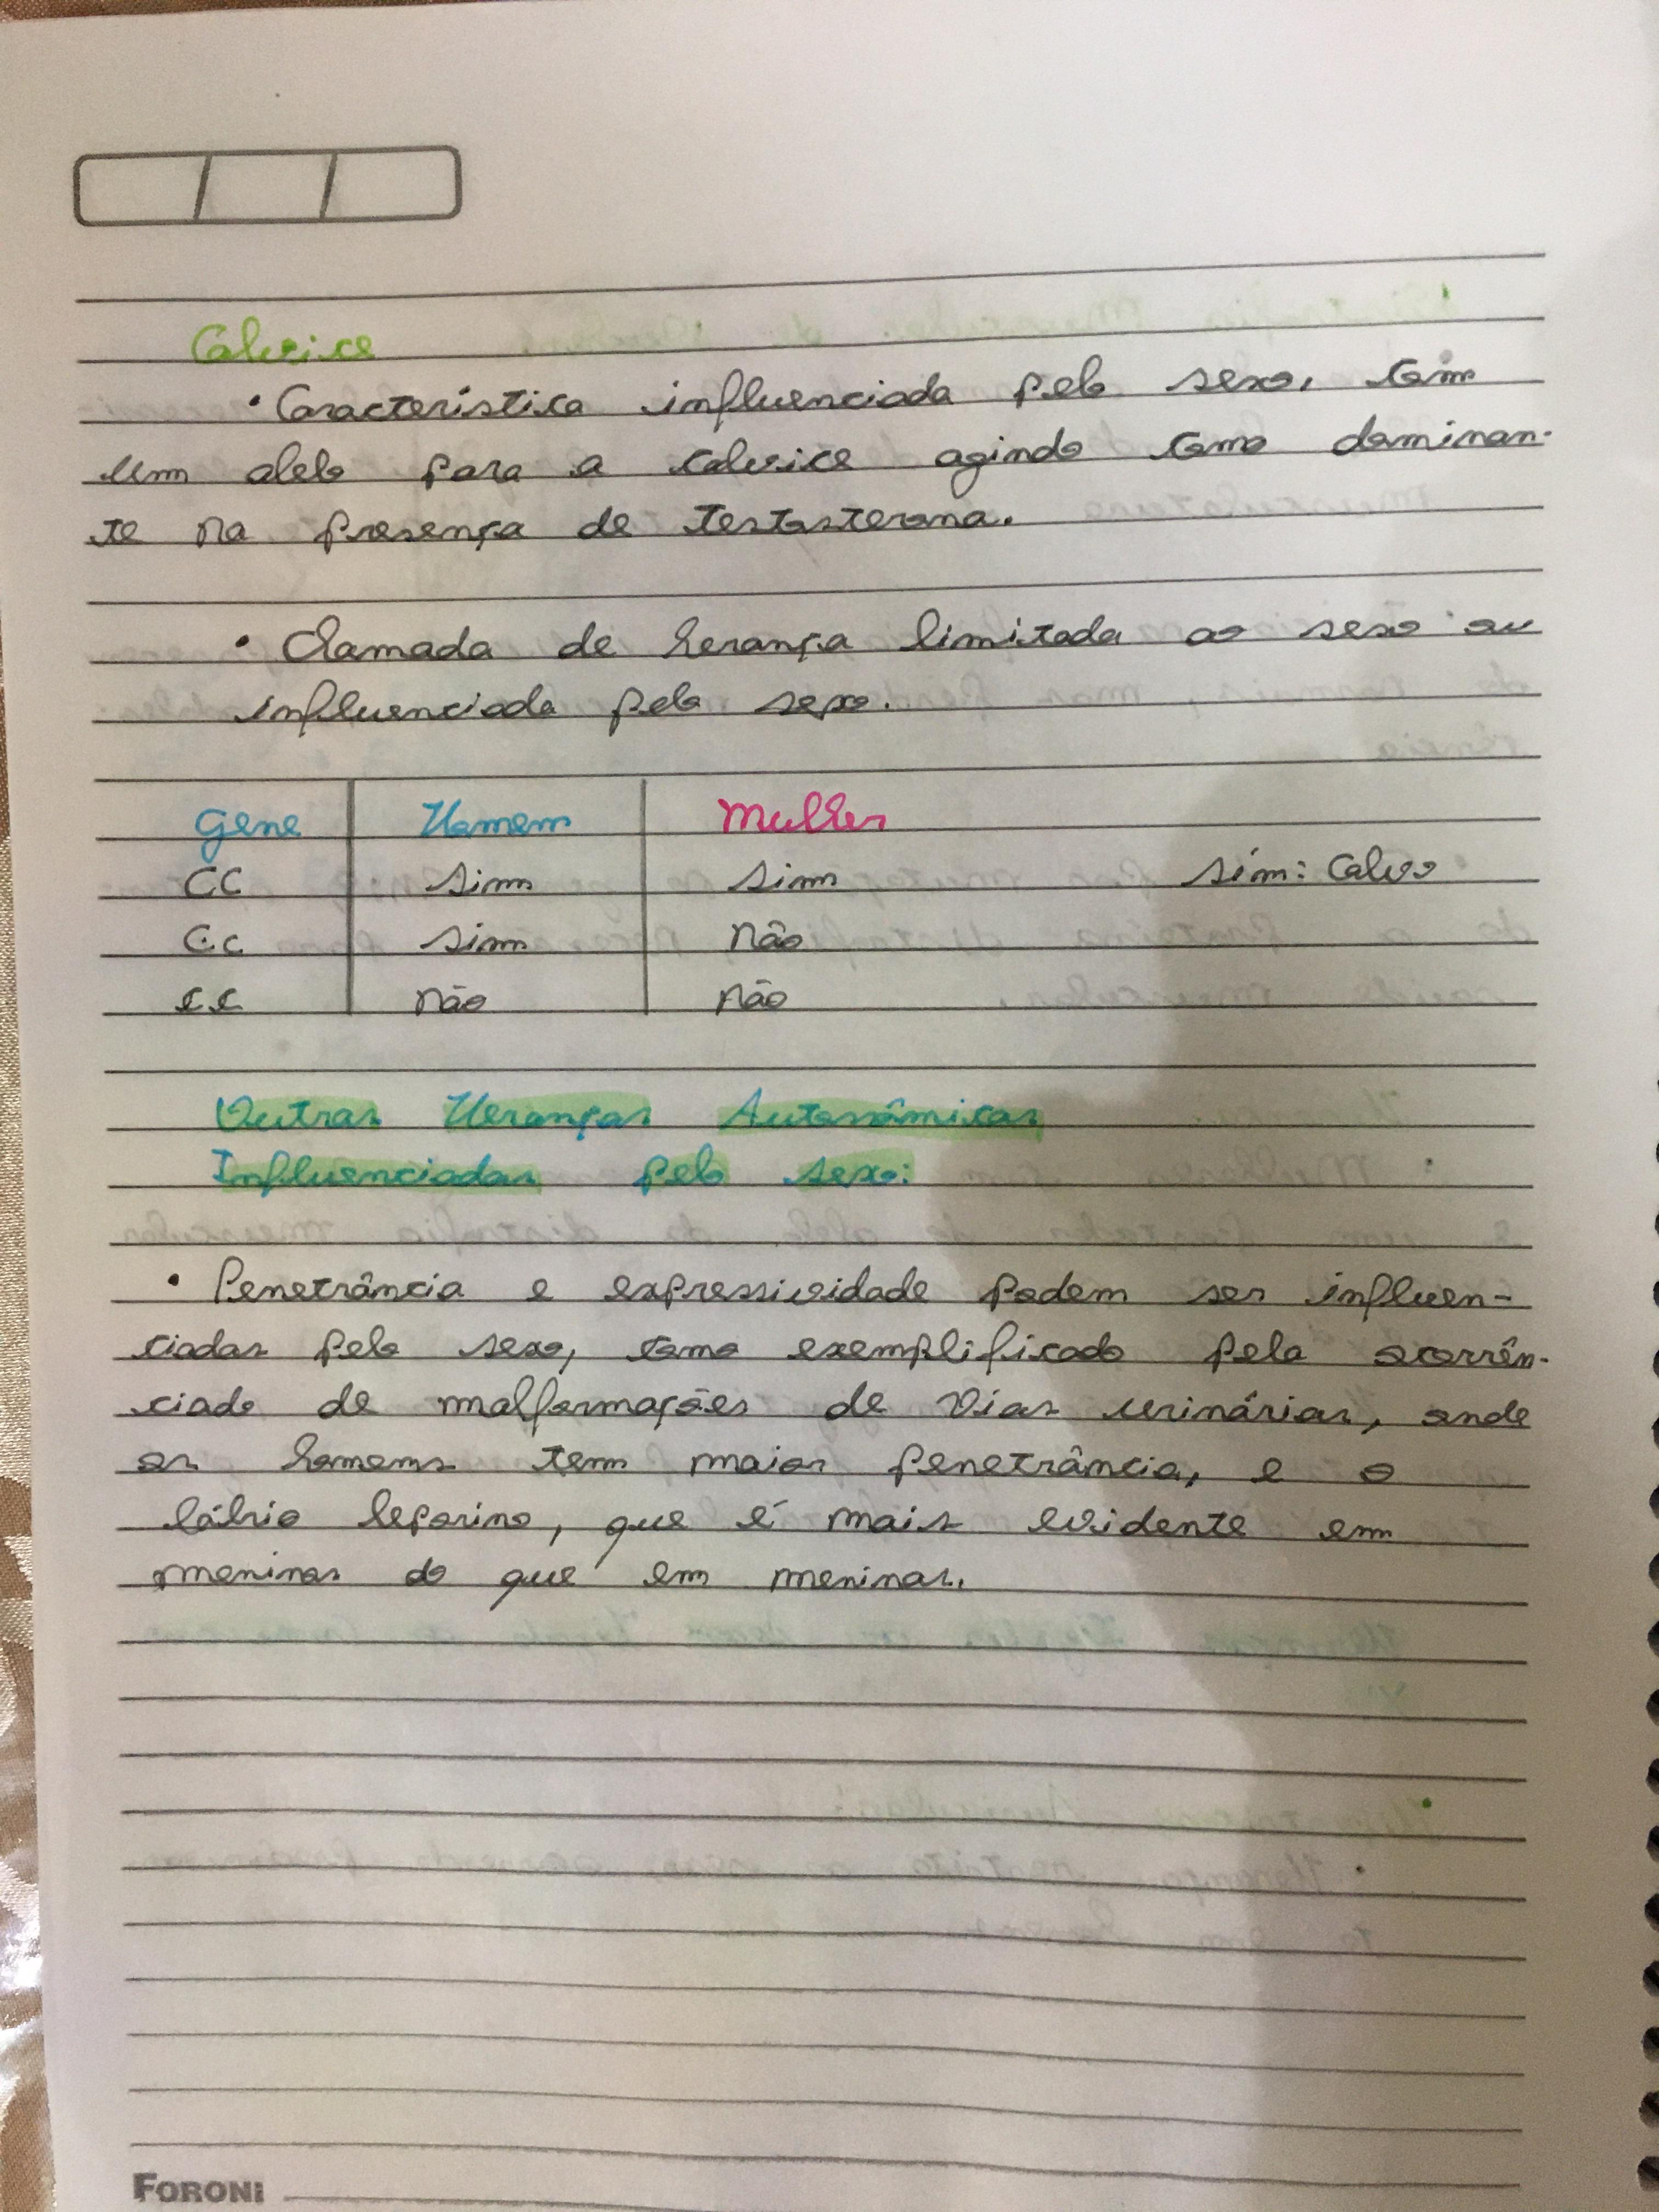 Calvice
• Característica influenciada pelo sexo, com
um alelo para a calvice agindo como dominan-
te na presença de testosterona.
• Chamada de herança limitada ao sexo ou
influenciada pelo sexo.
Gene Homem Mulher
CC sim sim sim: Calvo
Cc sim não
cc não não
Outras Heranças Autossômicas
Influenciadas pelo sexo:
• Penetrância e expressividade podem ser influen-
ciadas pelo sexo, como exemplificado pela ocorrên-
ciado de malformações de vias urinárias, onde
os homens tem maior penetrância, e o
lábio leporino, que é mais evidente em
do que em meninas.
FORONI